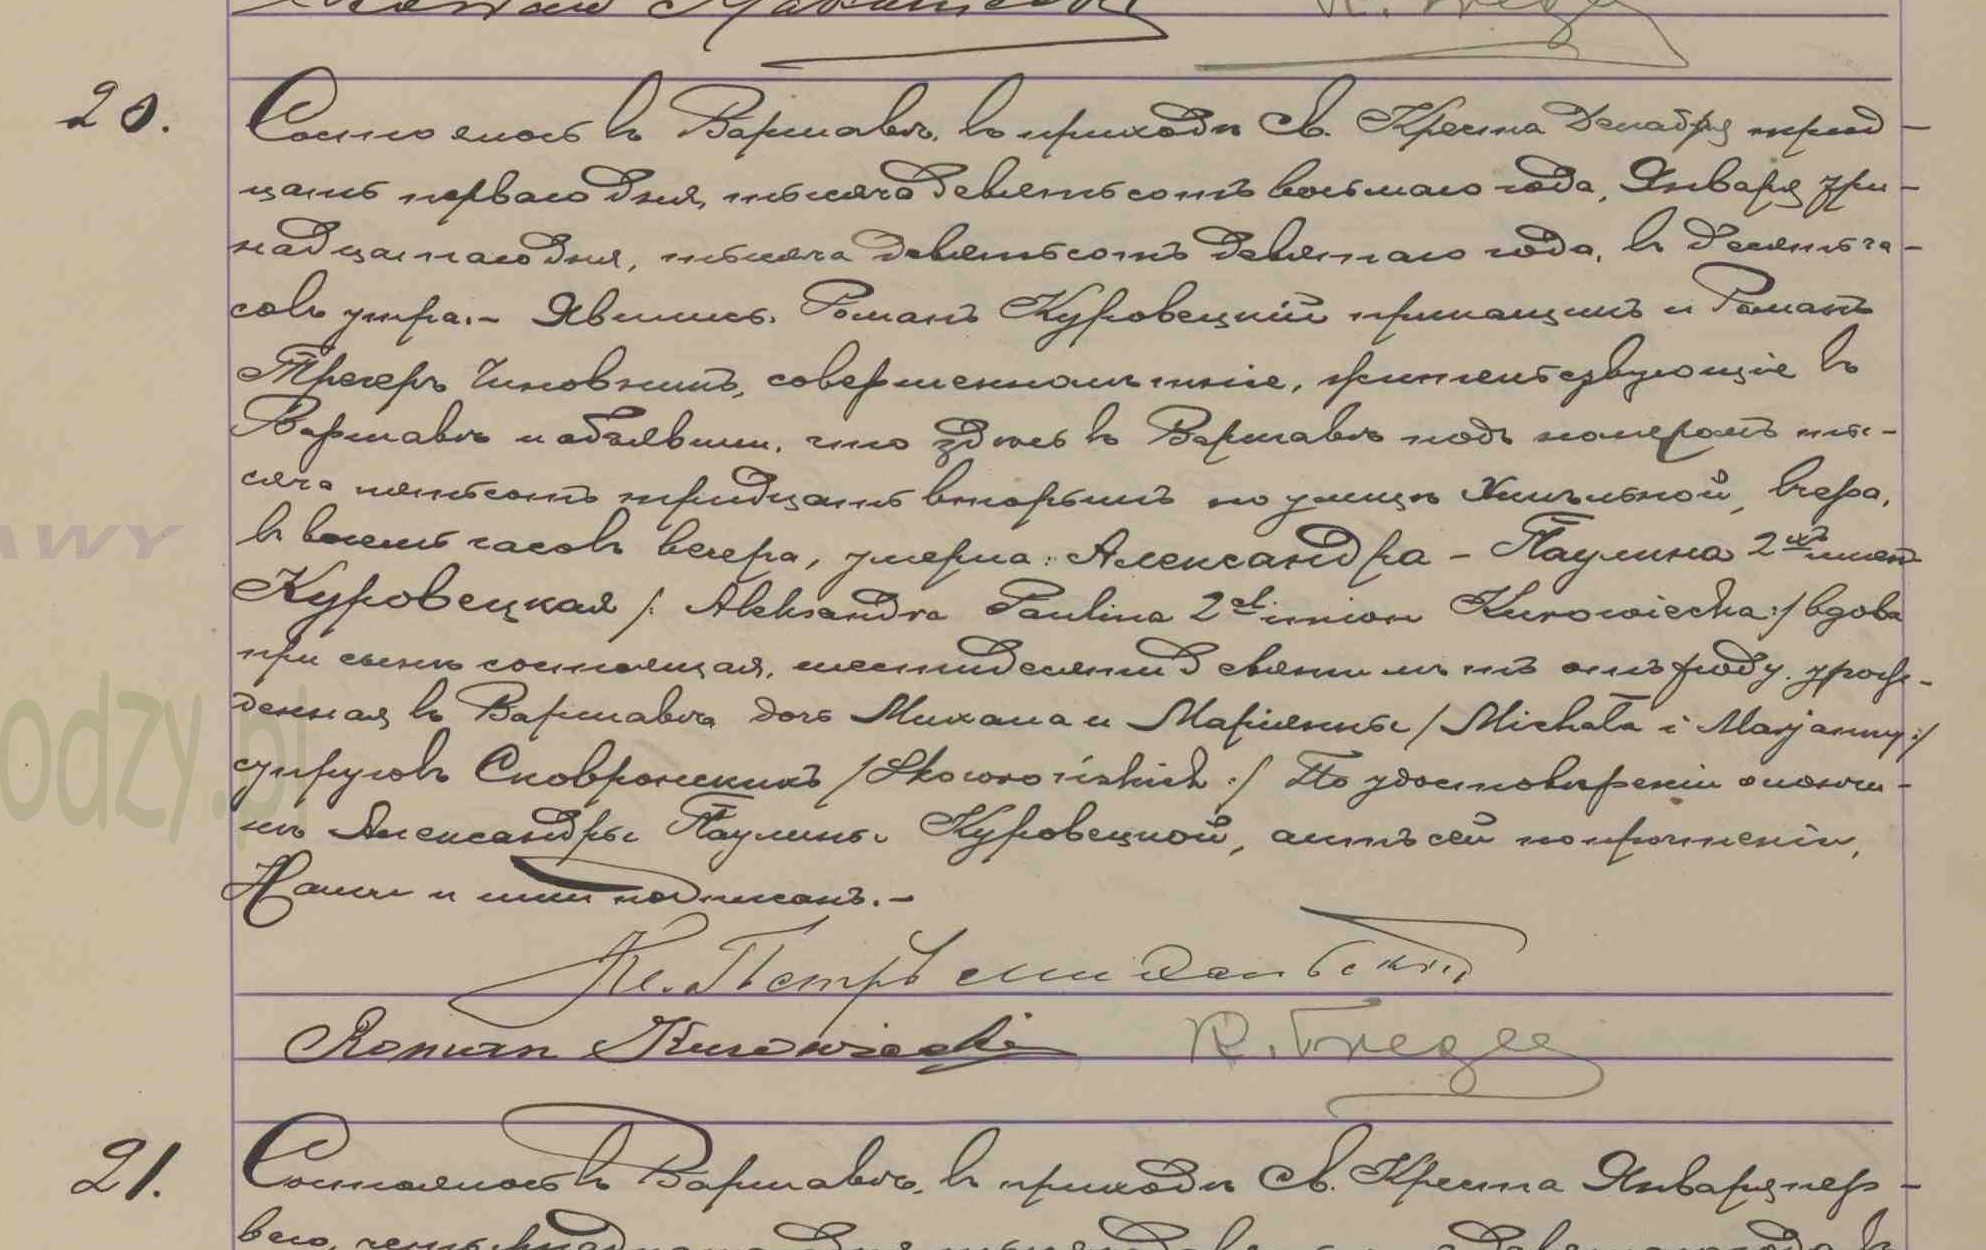 20.
Состоялось въ Варшавѣ, въ приходѣ Св. Креста Декабря трид-
цать перваго дня, тысяча девятьсотъ восьмаго года, Января три-
надцатаго дня, тысяча девятьсотъ девятаго года, въ десять ча-
совъ утра.- Явились: Романъ Куровецкій прикащикъ и Романъ
Трегеръ чиновникъ, совершеннолѣтніе, жительствующіе въ
Варшавѣ и объявили, что здѣсь въ Варшавѣ подъ номеромъ ты-
сяча пятьсотъ тридцать вторымъ по улицѣ Хмѣльной, вчера,
въ восемь часовъ вечера, умерла: Александра - Паулина 2хъ именъ
Куровецкая /: Aleksandra Paulina 2ch imion Kurowiecka :/ вдова
при сынѣ состоящая, шестидесяти девяти лѣтъ отъ роду, урож-
денная въ Варшавѣ дочь Михала и Маріянны / Michała i Marjanny :/
супруговъ Сковронскихъ / Skowrońskich :/ По удостовѣреніи о кончи-
нѣ Александры Паулины Куровецкой, актъ сей по прочтеніи,
Нами и ими подписанъ.-
Кс. Петръ
Roman Kurowiecki R. Treger
21.
Состоялось въ Варшавѣ, въ приходѣ Св. Креста Января пер-
ваго,